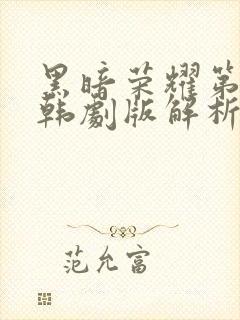 黑暗荣耀第
韩劇版解析
范允富